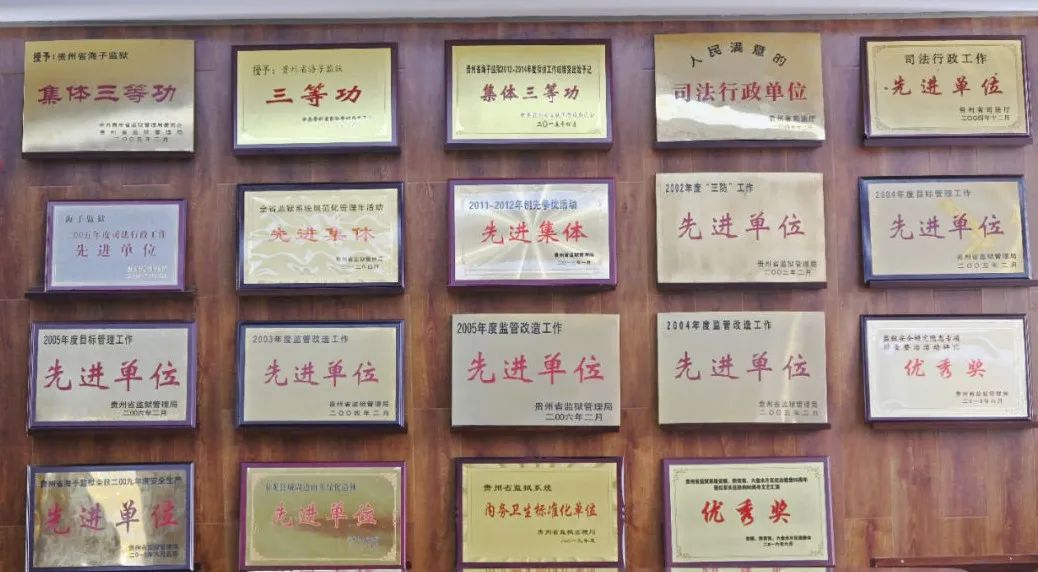 授予：贵州省海子监狱
集体三等功
中共贵州省监狱管理局委员会
贵州省监狱管理局
二〇〇五年二月
授予：贵州省海子监狱
三等功
集体三等功
二〇一五年四月
人民满意的
司法行政单位
贵州省司法厅
司法行政工作
先进单位
贵州省司法厅
二〇〇四年十二月
海子监狱
二〇〇五年度司法行政工作
先进单位
全省监狱系统规范化管理年活动
先进集体
贵州省监狱管理局
2011-2012年创先争优活动
先进集体
贵州省监狱管理局
2002年度“三防”工作
先进单位
贵州省监狱管理局
二〇〇三年二月
2004年度目标管理工作
先进单位
贵州省监狱管理局
二〇〇五年二月
2005年度目标管理工作
先进单位
贵州省监狱管理局
二〇〇六年二月
2003年度监管改造工作
先进单位
贵州省监狱管理局
二〇〇四年二月
2005年度监管改造工作
先进单位
贵州省监狱管理局
二〇〇六年二月
2004年度监管改造工作
先进单位
贵州省监狱管理局
二〇〇五年二月
优秀奖
贵州省海子监狱荣获二00九年度安全生产
先进单位
贵州省监狱管理局
先进单位
贵州省监狱系统
内务卫生标准化单位
贵州省监狱管理局
优秀奖
二〇一六年六月